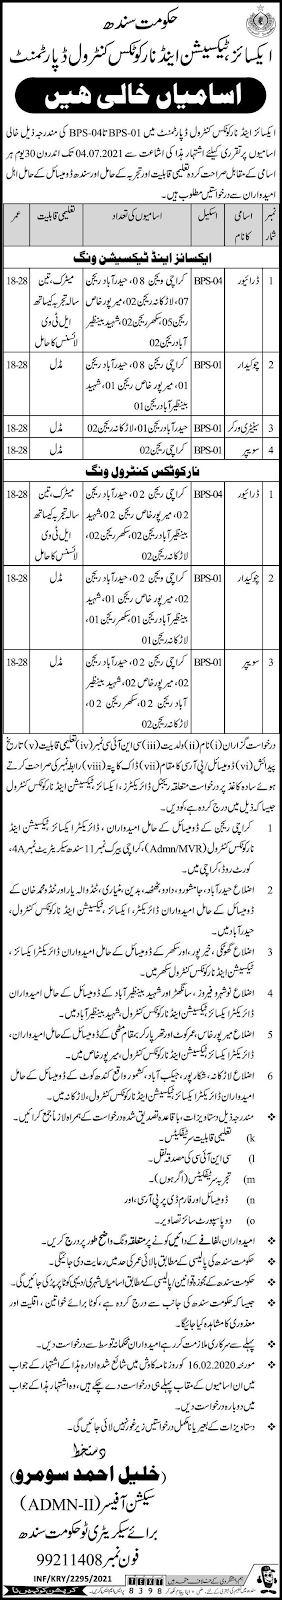 حکومت سندھ
ایکسائز، ٹیکسیشن اینڈ نارکوٹکس کنٹرول ڈپارٹمنٹ
اسامیاں خالی ھیں
ایکسائز اینڈ نارکوٹکس کنٹرول ڈپارٹمنٹ میں BPS-01 تا BPS-04 کی مندرجہ ذیل خالی
اسامیوں پر تقرری کیلئے اشتہار ہذا کی اشاعت سے 04.07.2021 تک اندرون 30 یوم ہر
اسامی کے مقابل صراحت کردہ تعلیمی قابلیت اور تجربہ کے حامل اور سندھ ڈومیسائل کے حامل اہل
امیدواران سے درخواستیں مطلوب ہیں۔
نمبر شمار اسامی کا نام اسکیل اسامیوں کی تعداد تعلیمی قابلیت عمر
ایکسائز اینڈ ٹیکسیشن ونگ
1 ڈرائیور BPS-04 کراچی ریجن 08، حیدرآباد ریجن میٹرک، تین 18-28
07، لاڑکانہ ریجن 02، میرپور خاص سالہ تجربہ کیساتھ
ریجن 05، سکھر ریجن 02، شہید بینظیر ایل ٹی وی
آباد ریجن 02 لائسنس کا حامل
2 چوکیدار BPS-01 کراچی ریجن 08، حیدرآباد ریجن مڈل 18-28
01، میرپور خاص ریجن 01، شہید
بینظیر آباد ریجن 01
3 سینیٹری ورکر BPS-01 حیدرآباد ریجن 01، لاڑکانہ ریجن 02 مڈل 18-28
4 سویپر BPS-01 کراچی ریجن 02 مڈل 18-28
نارکوٹکس کنٹرول ونگ
1 ڈرائیور BPS-04 کراچی ریجن 02، حیدرآباد ریجن میٹرک، تین 18-28
02، میرپور خاص ریجن 02، شہید سالہ تجربہ کیساتھ
بینظیر آباد ریجن 02، سکھر ریجن 02، ایل ٹی وی
لاڑکانہ ریجن 02 لائسنس کا حامل
2 چوکیدار BPS-01 کراچی ریجن 02، حیدرآباد ریجن مڈل 18-28
02، میرپور خاص ریجن 01، شہید
بینظیر آباد ریجن 01، سکھر ریجن 01،
لاڑکانہ ریجن 01
3 سویپر BPS-01 کراچی ریجن 02، حیدرآباد ریجن مڈل 18-28
02، میرپور خاص 02، شہید بینظیر
آباد ریجن 02، سکھر ریجن 02،
لاڑکانہ ریجن 02
درخواست گزاران (i) نام (ii) ولدیت (iii) سی این آئی سی نمبر (iv) تعلیمی قابلیت (v) تاریخ
پیدائش (vi) ڈومیسائل/پی آر سی کا مقام (vii) ڈاک کا پتہ (viii) رابطہ نمبر کی صراحت کرتے
ہوئے سادہ کاغذ پر درخواست متعلقہ ریجنل ڈائریکٹرز، ایکسائز، ٹیکسیشن اینڈ نارکوٹکس کنٹرول
جیسا کہ ذیل میں درج کردہ ہے، کو دیں۔
1 کراچی ریجن کے ڈومیسائل کے حامل امیدواران، ڈائریکٹر ایکسائز، ٹیکسیشن اینڈ
نارکوٹکس کنٹرول (Admn/MVR)، کراچی بیرک نمبر 11 سندھ سیکریٹریٹ نمبر 4A،
کورٹ روڈ، کراچی میں۔
2 اضلاع حیدرآباد، جامشورو، دادو، ٹھٹھہ، بدین، مٹیاری، ٹنڈوالہیار اور ٹنڈو محمد خان کے
ڈومیسائل کے حامل امیدواران ڈائریکٹر، ایکسائز، ٹیکسیشن اینڈ نارکوٹکس کنٹرول،
حیدرآباد میں۔
3 اضلاع گھوٹکی، خیرپور، اور سکھر کے ڈومیسائل کے حامل امیدواران ڈائریکٹر ایکسائز،
ٹیکسیشن اینڈ نارکوٹکس کنٹرول سکھر میں۔
4 اضلاع نوشہرو فیروز، سانگھڑ اور شہید بینظیر آباد کے ڈومیسائل کے حامل امیدواران
ڈائریکٹر ایکسائز، ٹیکسیشن اینڈ نارکوٹکس کنٹرول، شہید بینظیر آباد میں۔
5 اضلاع میرپور خاص، عمر کوٹ اور تھرپارکر بمقام مٹھی کے ڈومیسائل کے حامل امیدواران،
ڈائریکٹر ایکسائز، ٹیکسیشن اینڈ نارکوٹکس کنٹرول، میرپور خاص میں۔
6 اضلاع لاڑکانہ، شکارپور، جیکب آباد، کشمور واقع کندھ کوٹ کے ڈومیسائل کے حامل
امیدواران ڈائریکٹر ایکسائز، ٹیکسیشن اینڈ نارکوٹکس کنٹرول، لاڑکانہ میں۔
مندرجہ ذیل دستاویزات، باقاعدہ تصدیق شدہ درخواست کے ہمراہ لازماً جمع کرائیں۔
k) تعلیمی قابلیت سرٹیفکیٹس۔
l) سی این آئی سی کی مصدقہ نقل۔
m) تجربہ سرٹیفکیٹس (اگر ہوں)۔
n) ڈومیسائل اور فارم ڈی پی آر سی، اور
o) دو پاسپورٹ سائز تصاویر۔
امیدواران، لفافے کے دائیں کونے پر متعلقہ ونگ واضح طور پر درج کریں۔
حکومت سندھ کی پالیسی کے مطابق بالائی عمر کی حد میں رعایت دی جائیگی۔
حکومت سندھ کے مجوزہ قوانین/پالیسی کے مطابق اسامیاں شہری/دیہی کوٹا پر پُر کی جائیں گی۔
جیسا کہ حکومت سندھ کی جانب سے درج کردہ ہے، کوٹا برائے خواتین، اقلیت اور
معذوری کا مشاہدہ کیا جائیگا۔
پہلے سے سرکاری ملازمت کر رہے امیدواران محکمانہ توسط سے درخواست دیں۔
مورخہ 16.02.2020 کو روزنامہ کاوش میں شائع شدہ ادارہ ہذا کے اشتہار کے جواب
میں ان اسامیوں کے مقابل پہلے ہی درخواست دے چکے ہیں، وہ اشتہار ہذا کے جواب
میں دوبارہ درخواست دیں۔
دستاویزات کے بغیر یا نامکمل درخواستیں زیر غور نہیں لائی جائیں گی۔
دستخط
(خلیل احمد سومرو)
سیکشن آفیسر (ADMN-II)
برائے سیکریٹری ٹو حکومت سندھ
فون نمبر 99211408
INF/KRY/2295/2021
TEXT
8398
کرپشن کو کہیں نا